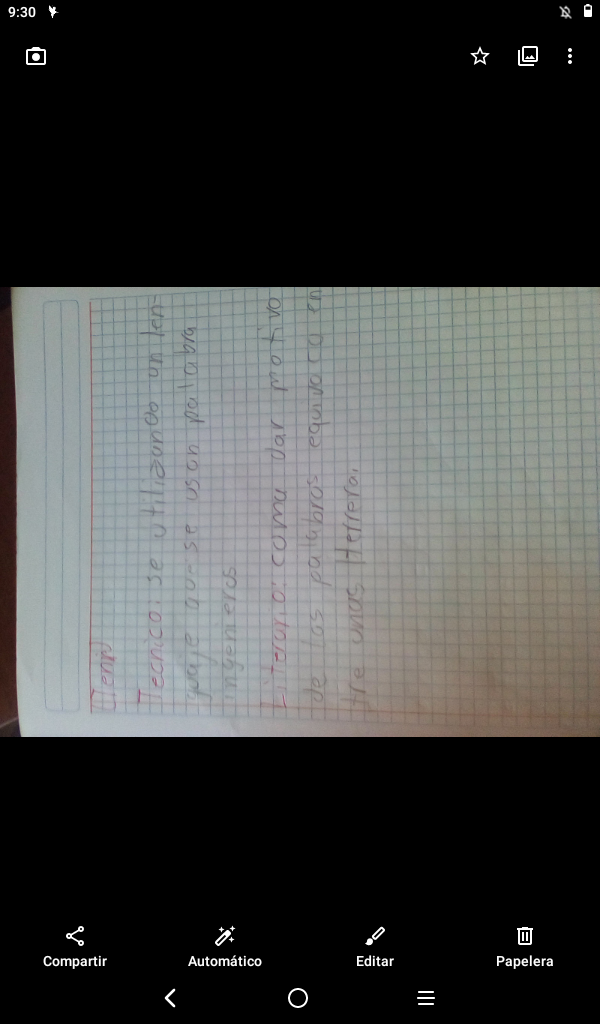 9:30
Tecnico: se utilizando un len-
guaje que se usan palabra
ingenieros
Literario: como dar motivo
de las palabras equivoca en
tre unas Herrera.
Compartir
Automático
Editar
Papelera